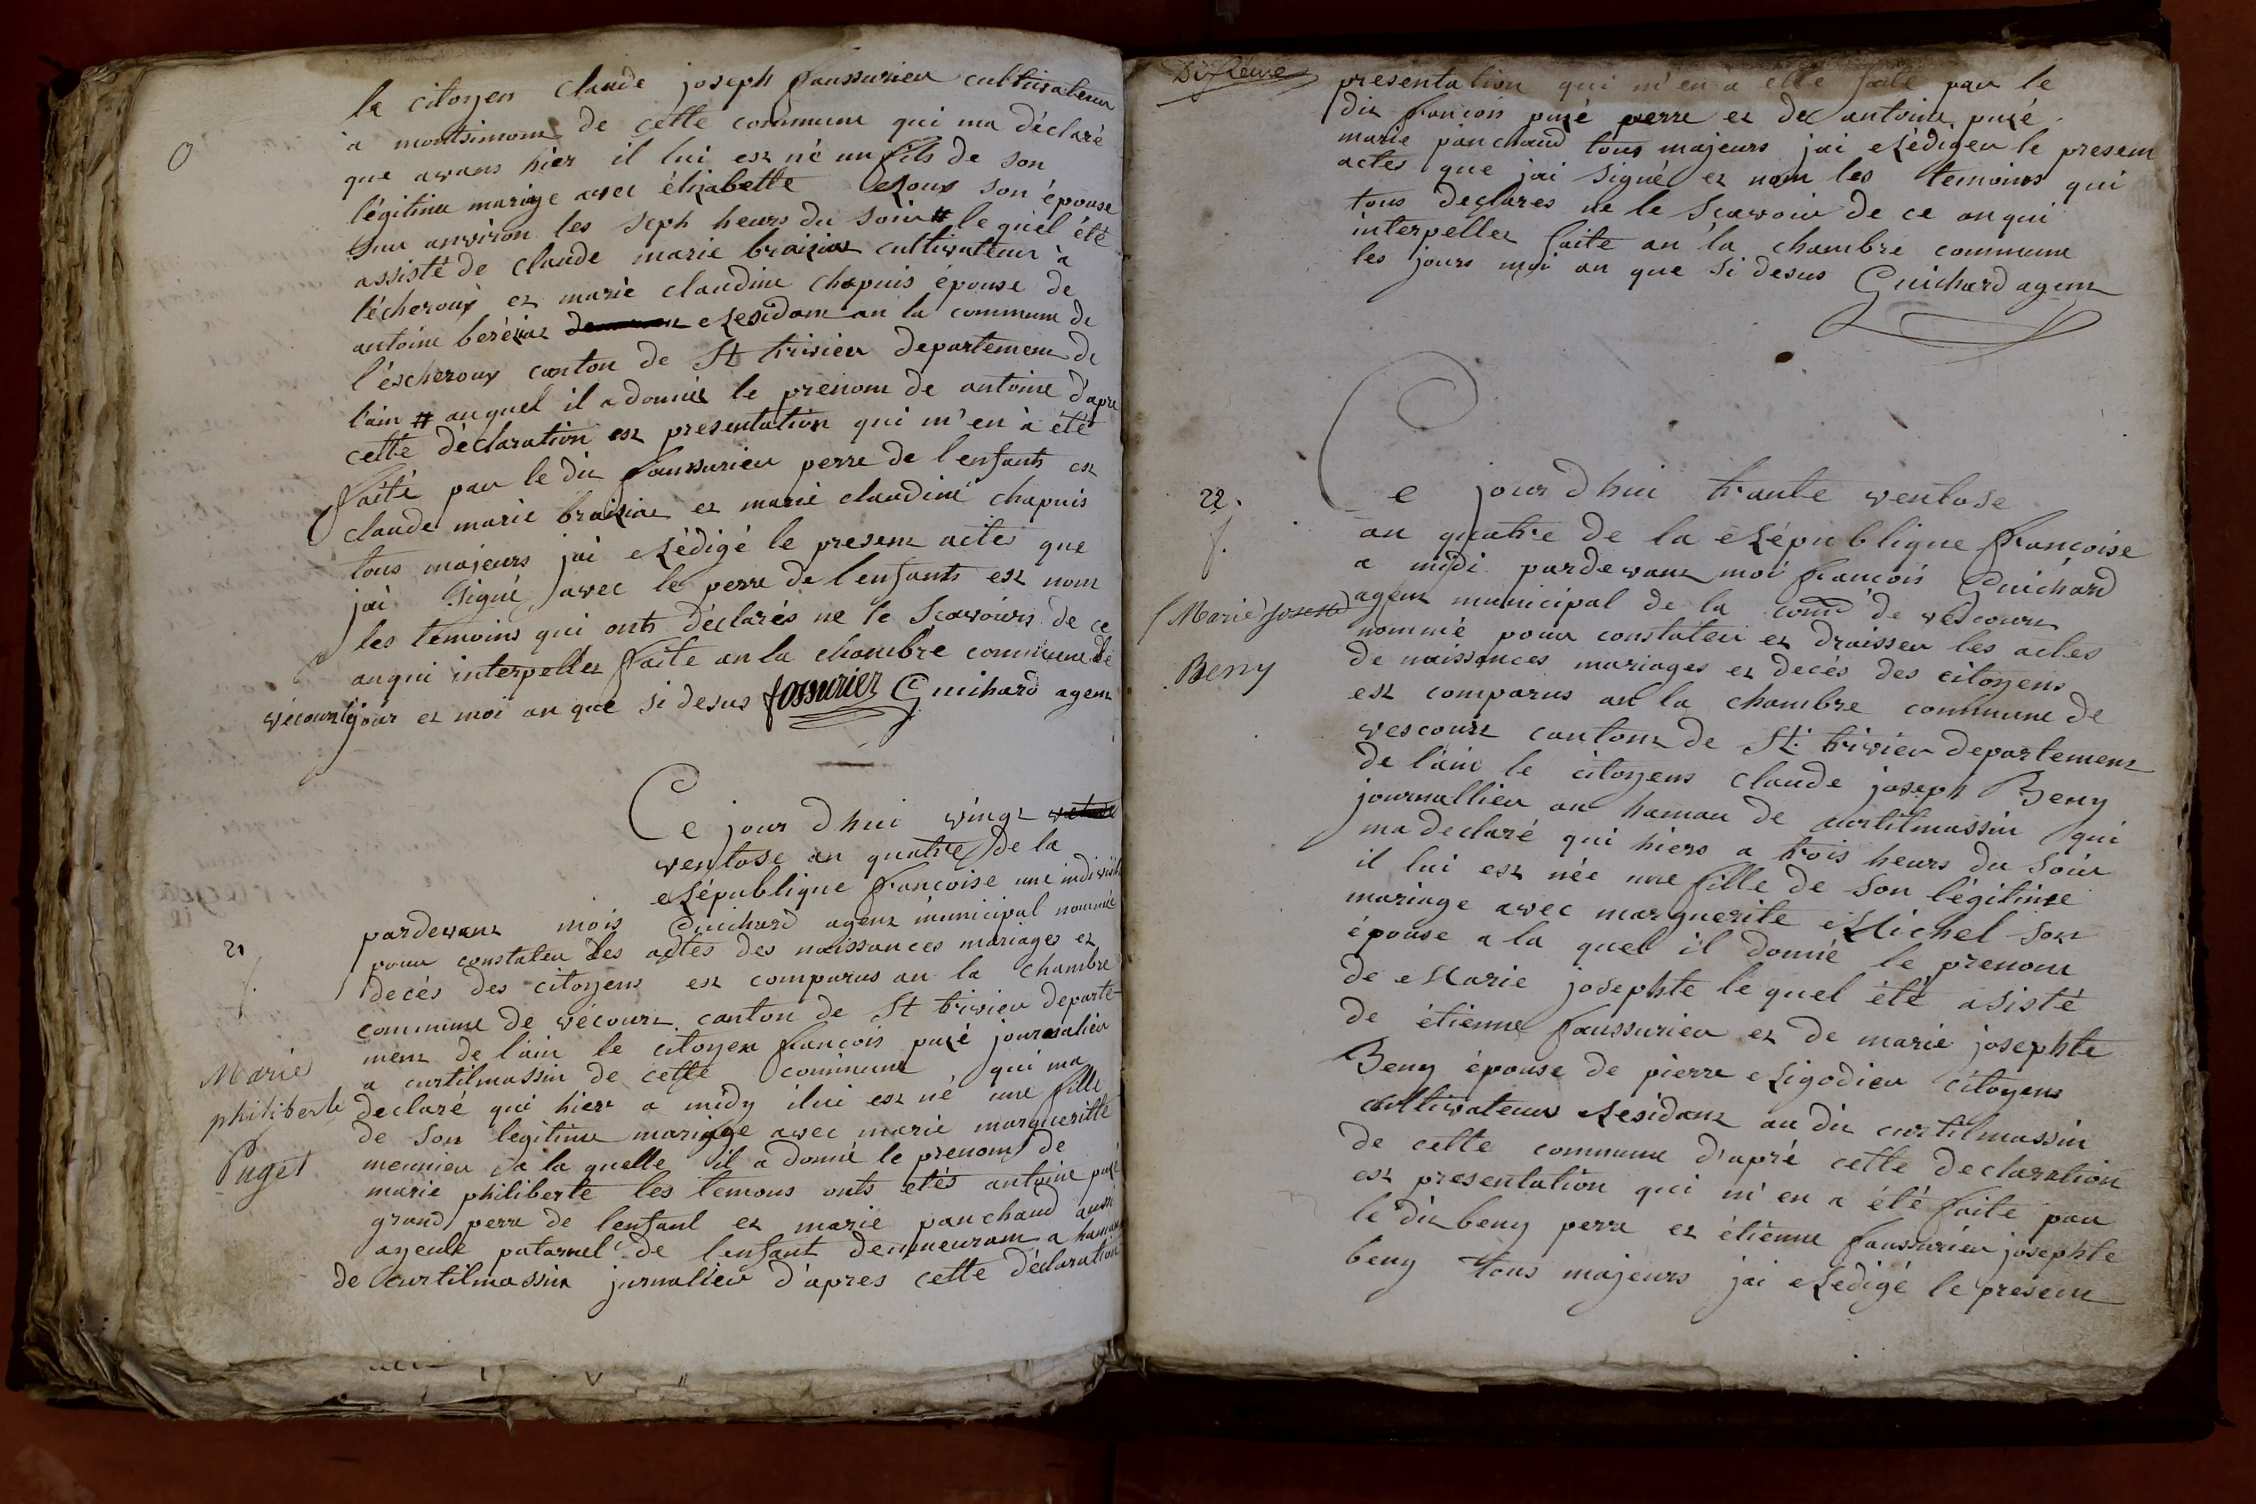 le citoyen claude joseph faussurieu cultivateur
à montsimons de cette commune qui ma déclaré
que avans hier il lui est né un fils de son
légitime mariage avec élizabette Roux son épouse
sur anviron les seph heurs du soir # le quel été
assisté de claude marie braiziat cultivateur à
lécheroux et marie claudine chapuis épouse de
antoine beréziat Residant an la commune de
l'escheroux canton de St trivier departement de
l'ain # auquel il a donnée le prenom de antoine d'apre
cette déclaration est presentation qui m'en à été
faite par le dit faussurieu perre de l'enfants et
claude marie braiziat et marie claudine chapuis
tous majeurs jai Rédigé le present actes que
jai signé avec le perre de l'enfants est non
les temoins qui onts déclarés ne le scavoirs de ce
anqui interpeller faite an la chambre commune de
vécourt jour et moi an que si desus fossurier Guichard agent
Ce jour d'hui vingt
ventose an quatre de la
République françoise une indivisible
21
pardevant mois Guichard agent municipal nommée
pour constater les actes des naissances mariages et
decés des citoyens est comparus an la chambre
commune de vécourt canton de St trivier departe-
ment de l'ain le citoyen françois puzé journalier
a curtilmassin de cette commune qui ma
Marie
philiberte
Puget
declaré qui hier a midy ilui est né une fille
de son legitime mariage avec marie margueritte
meunier à la quelle il a donné le prenoms de
marie philiberte les temons onts etés antoine puzé
grand perre de lenfant et marie panchaud aussi
ayeule paternel de l'enfant demmeurant a hamau
de curtilmassin jurnalier d'apres cette déclaration
Difleure
presentation qui m'en a etté faite par le
dit françois puzé perre et de antoine puzé
marie panchaud tous majeurs jai Rédiger le present
actes que jai signé et non les temoins qui
tous declares ne le scavoir de ce anqui
interpeller faite an la chambre commune
les jours moi an que si desus Guichard agent
22.
f.
Marie Josette
Beny
Ce jour d'hui trante ventose
an quatre de la République françoise
a midi pardevant moi françois Guichard
agent municipal de la comne de vescourt
nommé pour constater et draisser les actes
de naissances mariages et decés des citoyens
est comparus an la chambre commune de
vescourt cantont de St. trivier departement
de l'ain le citoyens claude joseph Beny
journallier au hamau de curtilmassin qui
ma declaré qui hiers a trois heurs du soir
il lui est née une fille de son légitime
mariage avec marguerite Michel son
épouse a la quel il donné le prenom
de Marie josephte le quel été asisté
de étienne faussurier et de marie josephte
Beny épouse de pierre Rigodier citoyens
cultivateurs Residant au dit curtilmassin
de cette commune d'apré cette declaration
est presentation qui m'en a été faite par
le dit beny perre et étienne faussurier josephte
beny tous majeurs jai Redigé le present